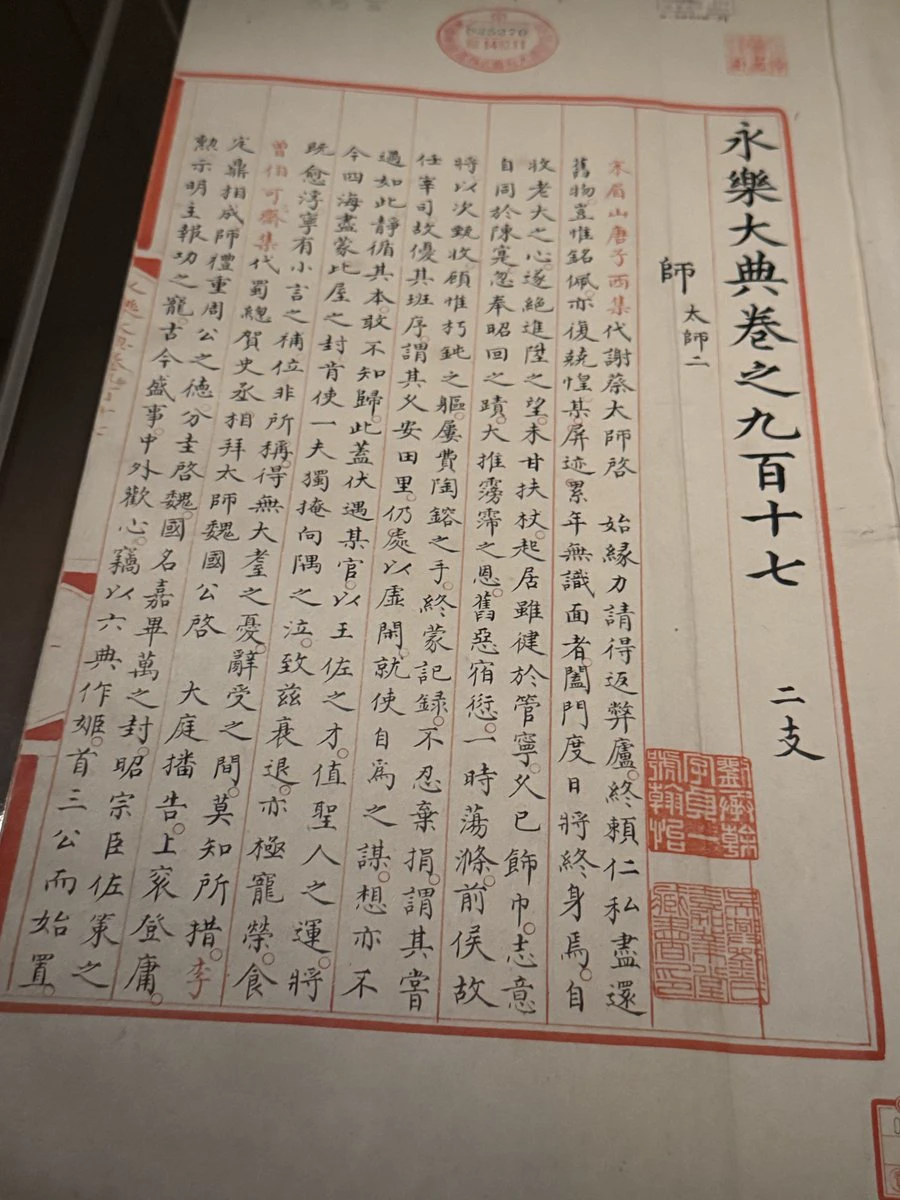 永樂大典卷之九百十七 二支
師 太師二
宋眉山唐子西集代謝蔡太師啓 始緣力請得返弊廬。終賴仁私盡還
舊物。豈惟銘佩。亦復兢惶。某屏迹累年。無識面者。闔門度日。將終身焉。自
牧老大之心。遂絕進陞之望。未甘扶杖。起居雖健於管寧。久已飾巾。志意
自同於陳寔。忽奉昭回之蹟。大推霶霈之恩。舊惡宿愆。一時蕩滌。前侯故
將以次甄收。顧惟朽鈍之軀。屢費陶鎔之手。終蒙記録。不忍棄捐。謂其嘗
任宰司。故優其班序。謂其久安田里。仍處以虛閑。就使自爲之謀。想亦不
過如此。靜循其本。敢不知歸。此蓋伏遇某官。以王佐之才。值聖人之運。將
今四海盡蒙比屋之封。肯使一夫獨掩向隅之泣。致兹衰退。亦極寵榮。食
既愈浮。寧有小言之補。位非所稱。得無大耋之憂。辭受之間。莫知所措。李
曾伯可齋集代蜀總賀史丞相拜太師魏國公啓 大庭播告。上衮登庸。
定鼎相成。師禮重周公之德。分圭啓魏。國名嘉畢萬之封。昭宗臣佐策之
勲。示明主報功之寵。古今盛事。中外歡心。竊以六典作姬。首三公而始置。
劉承幹字貞一號翰怡
吳興劉氏嘉業堂藏書印